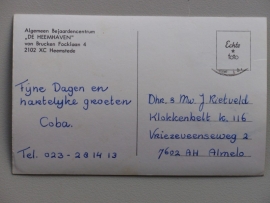 Algemeen Bejaardencentrum
„DE HEEMHAVEN"
van Brucken Focklaan 4
2102 XC Heemstede
Echte
foto
Fijne Dagen en
hartelijke groeten
Coba.
Tel. 023-281413
Dhr. & Mw J. Rietveld
Klokkenbelt k. 116
Vriezeveenseweg 2
7602 AH Almelo